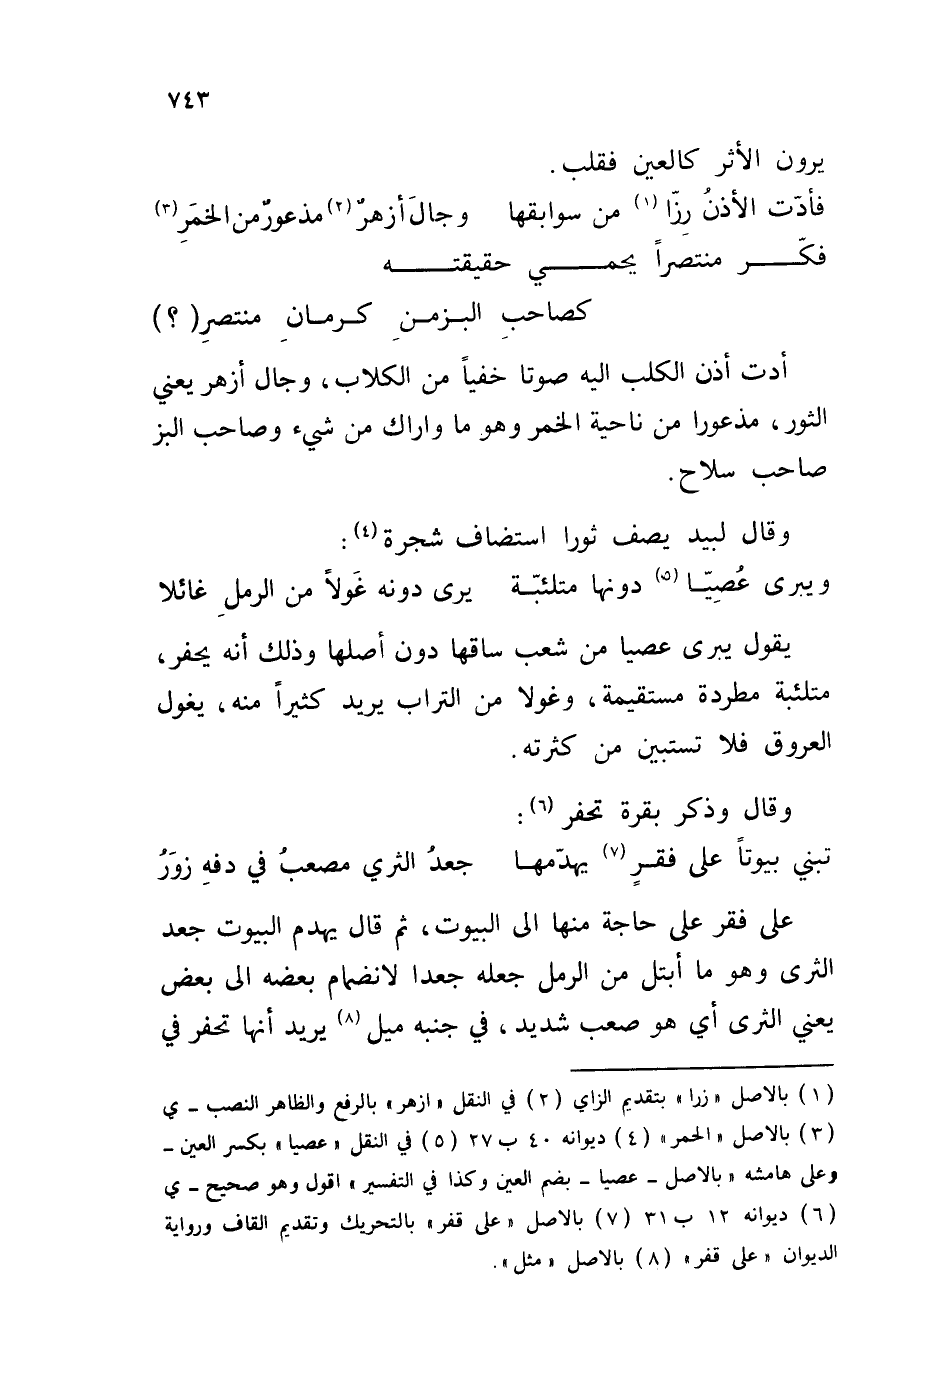 ٧٤٣
يرون الأثر كالعين فقلب.
فأدّت الأذنُ رِزّا (١) من سوابقها وجالَ أزهرٌ (٢) مذعورٌ من الخمَرِ (٣)
فكّر منتصراً يحمي حقيقته
كصاحبِ البزمنِ كرمانِ منتصرِ (؟)
أدت أذن الكلب اليه صوتا خفياً من الكلاب، وجال أزهر يعني
الثور، مذعورا من ناحية الخمر وهو ما واراك من شيء وصاحب البز
صاحب سلاح.
وقال لبيد يصف ثورا استضاف شجرة (٤):
ويبرى عُصِيّا (٥) دونها متلئبّة يرى دونه غَولاً من الرملِ غائلا
يقول يبرى عصيا من شعب ساقها دون أصلها وذلك أنه يحفر،
متلئبة مطردة مستقيمة، وغولا من التراب يريد كثيراً منه، يغول
العروق فلا تستبين من كثرته.
وقال وذكر بقرة تحفر (٦):
تبني بيوتاً على فقرٍ (٧) يهدّمها جعدُ الثري مصعبُ في دفهِ زوَرُ
على فقر على حاجة منها الى البيوت، ثم قال يهدم البيوت جعد
الثرى وهو ما أبتل من الرمل جعله جعدا لانضمام بعضه الى بعض
يعني الثرى أي هو صعب شديد، في جنبه ميل (٨) يريد أنها تحفر في
(١) بالاصل «زرا» بتقديم الزاي (٢) في النقل «ازهر» بالرفع والظاهر النصب - ي
(٣) بالاصل «الحمر» (٤) ديوانه ٤٠ ب ٢٧ (٥) في النقل «عصيا» بكسر العين -
وعلى هامشه «بالاصل - عصيا - بضم العين وكذا في التفسير» اقول وهو صحيح - ي
(٦) ديوانه ١٢ ب ٣١ (٧) بالاصل «على قفر» بالتحريك وتقديم القاف ورواية
الديوان «على قفر» (٨) بالاصل «مثل».